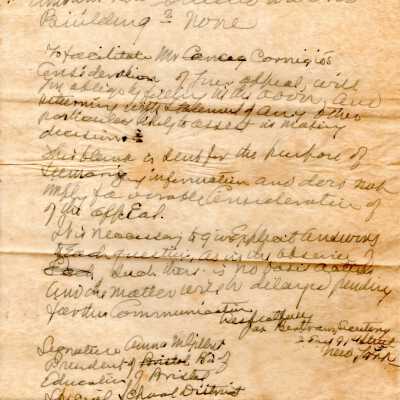 Building? None
To facilitate Mr Carnegie's
Consideration of the appeal, will
you oblige by filling in the above, and
returning with statement of any other
particulars likely to assist in making
decision?
This blank is sent for the purpose of
information and does not
imply favorable Consideration of
of the appeal.
It is necessary to give explicit answers
question, as in the absence of
such there is no basis
and the matter will be delayed pending
further Communication
Respectfully
Jas Bertram, Secretary
2 East 91st Street
New York
Signature Anna M
President of Bristol Bd of
Education of Bristol
School District